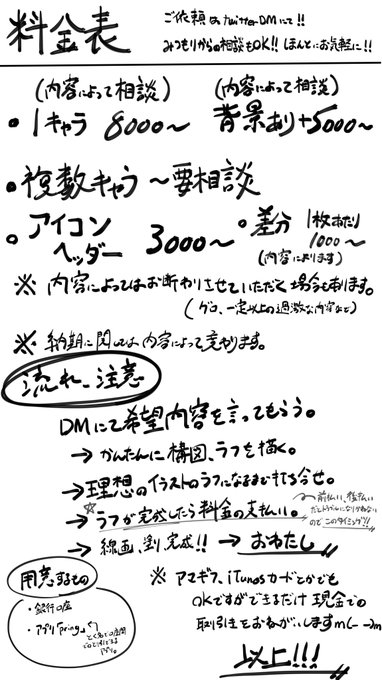 料金表
ご依頼はtwitterDMにて!!
みつもりからの相談もOK!! ほんとにお気軽に!!
(内容によって相談)
・1キャラ 8000〜
(内容によって相談)
背景あり+5000〜
・複数キャラ 〜要相談
・アイコン
ヘッダー 3000〜
・差分 1枚あたり
1000〜
(内容によります)
※ 内容によってはお断りさせていただく場合もあります。
(グロ、一定以上の過激な内容など)
※ 納期に関しては内容によって変わります。
流れ、注意
DMにて希望内容を言ってもらう。
→かんたんに構図、ラフを描く。
→理想のイラストのラフになるまで打ち合せ。
→☆ラフが完成したら料金の支払い。
〜前払い、後払い
だとトラブルになりかねない
のでこのタイミング!!
→線画、塗り、完成!! →おわたし
用意するもの
・銀行口座
・アプリ「pring」
※ アマギフ、iTunesカードとかでも
OKですができるだけ現金での
取引きをおねがいしますm(_ _)m
以上!!!